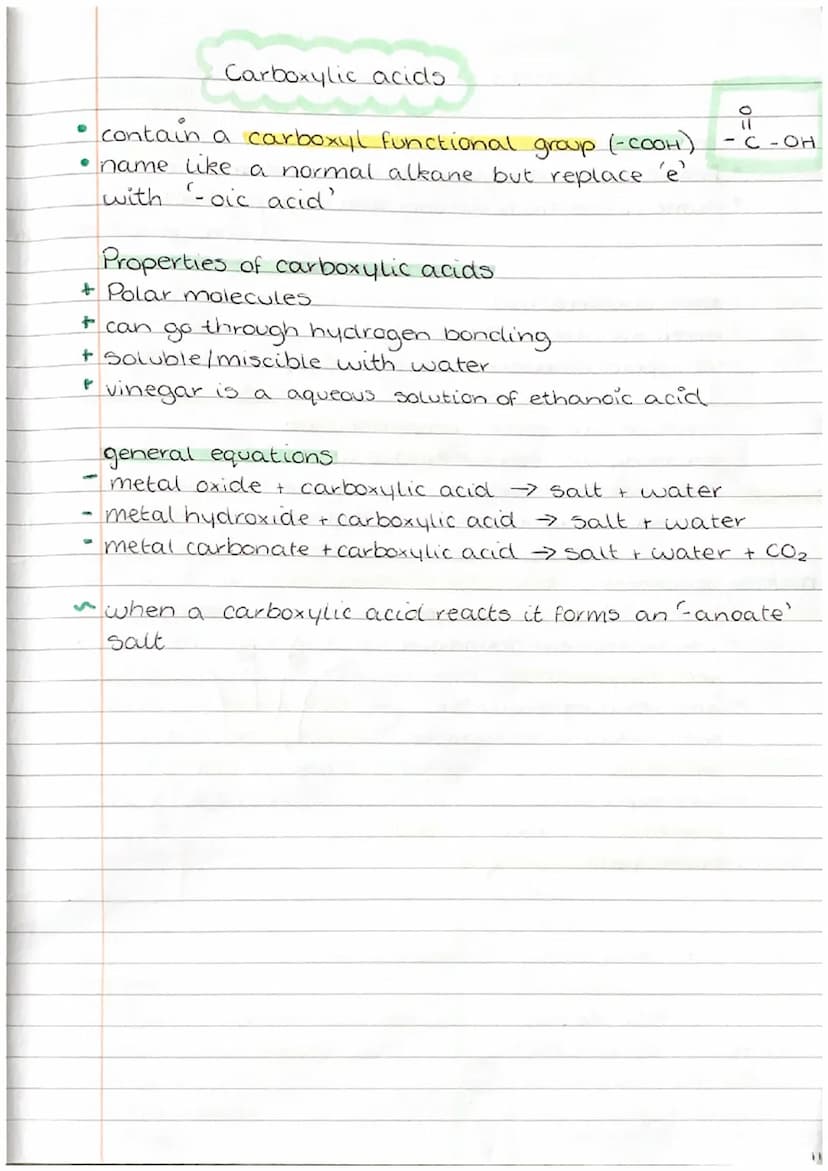 Carboxylic acids
O
||
- C - OH
• contain a carboxyl functional group (-COOH)
• name like a normal alkane but replace 'e'
with '-oic acid'
Properties of carboxylic acids
+ Polar molecules
+ can go through hydrogen bonding
+ soluble/miscible with water
+ vinegar is a aqueous solution of ethanoic acid
general equations
- metal oxide + carboxylic acid → salt + water
- metal hydroxide + carboxylic acid → salt + water
- metal carbonate + carboxylic acid → salt + water + CO₂
~ when a carboxylic acid reacts it forms an '-anoate'
salt